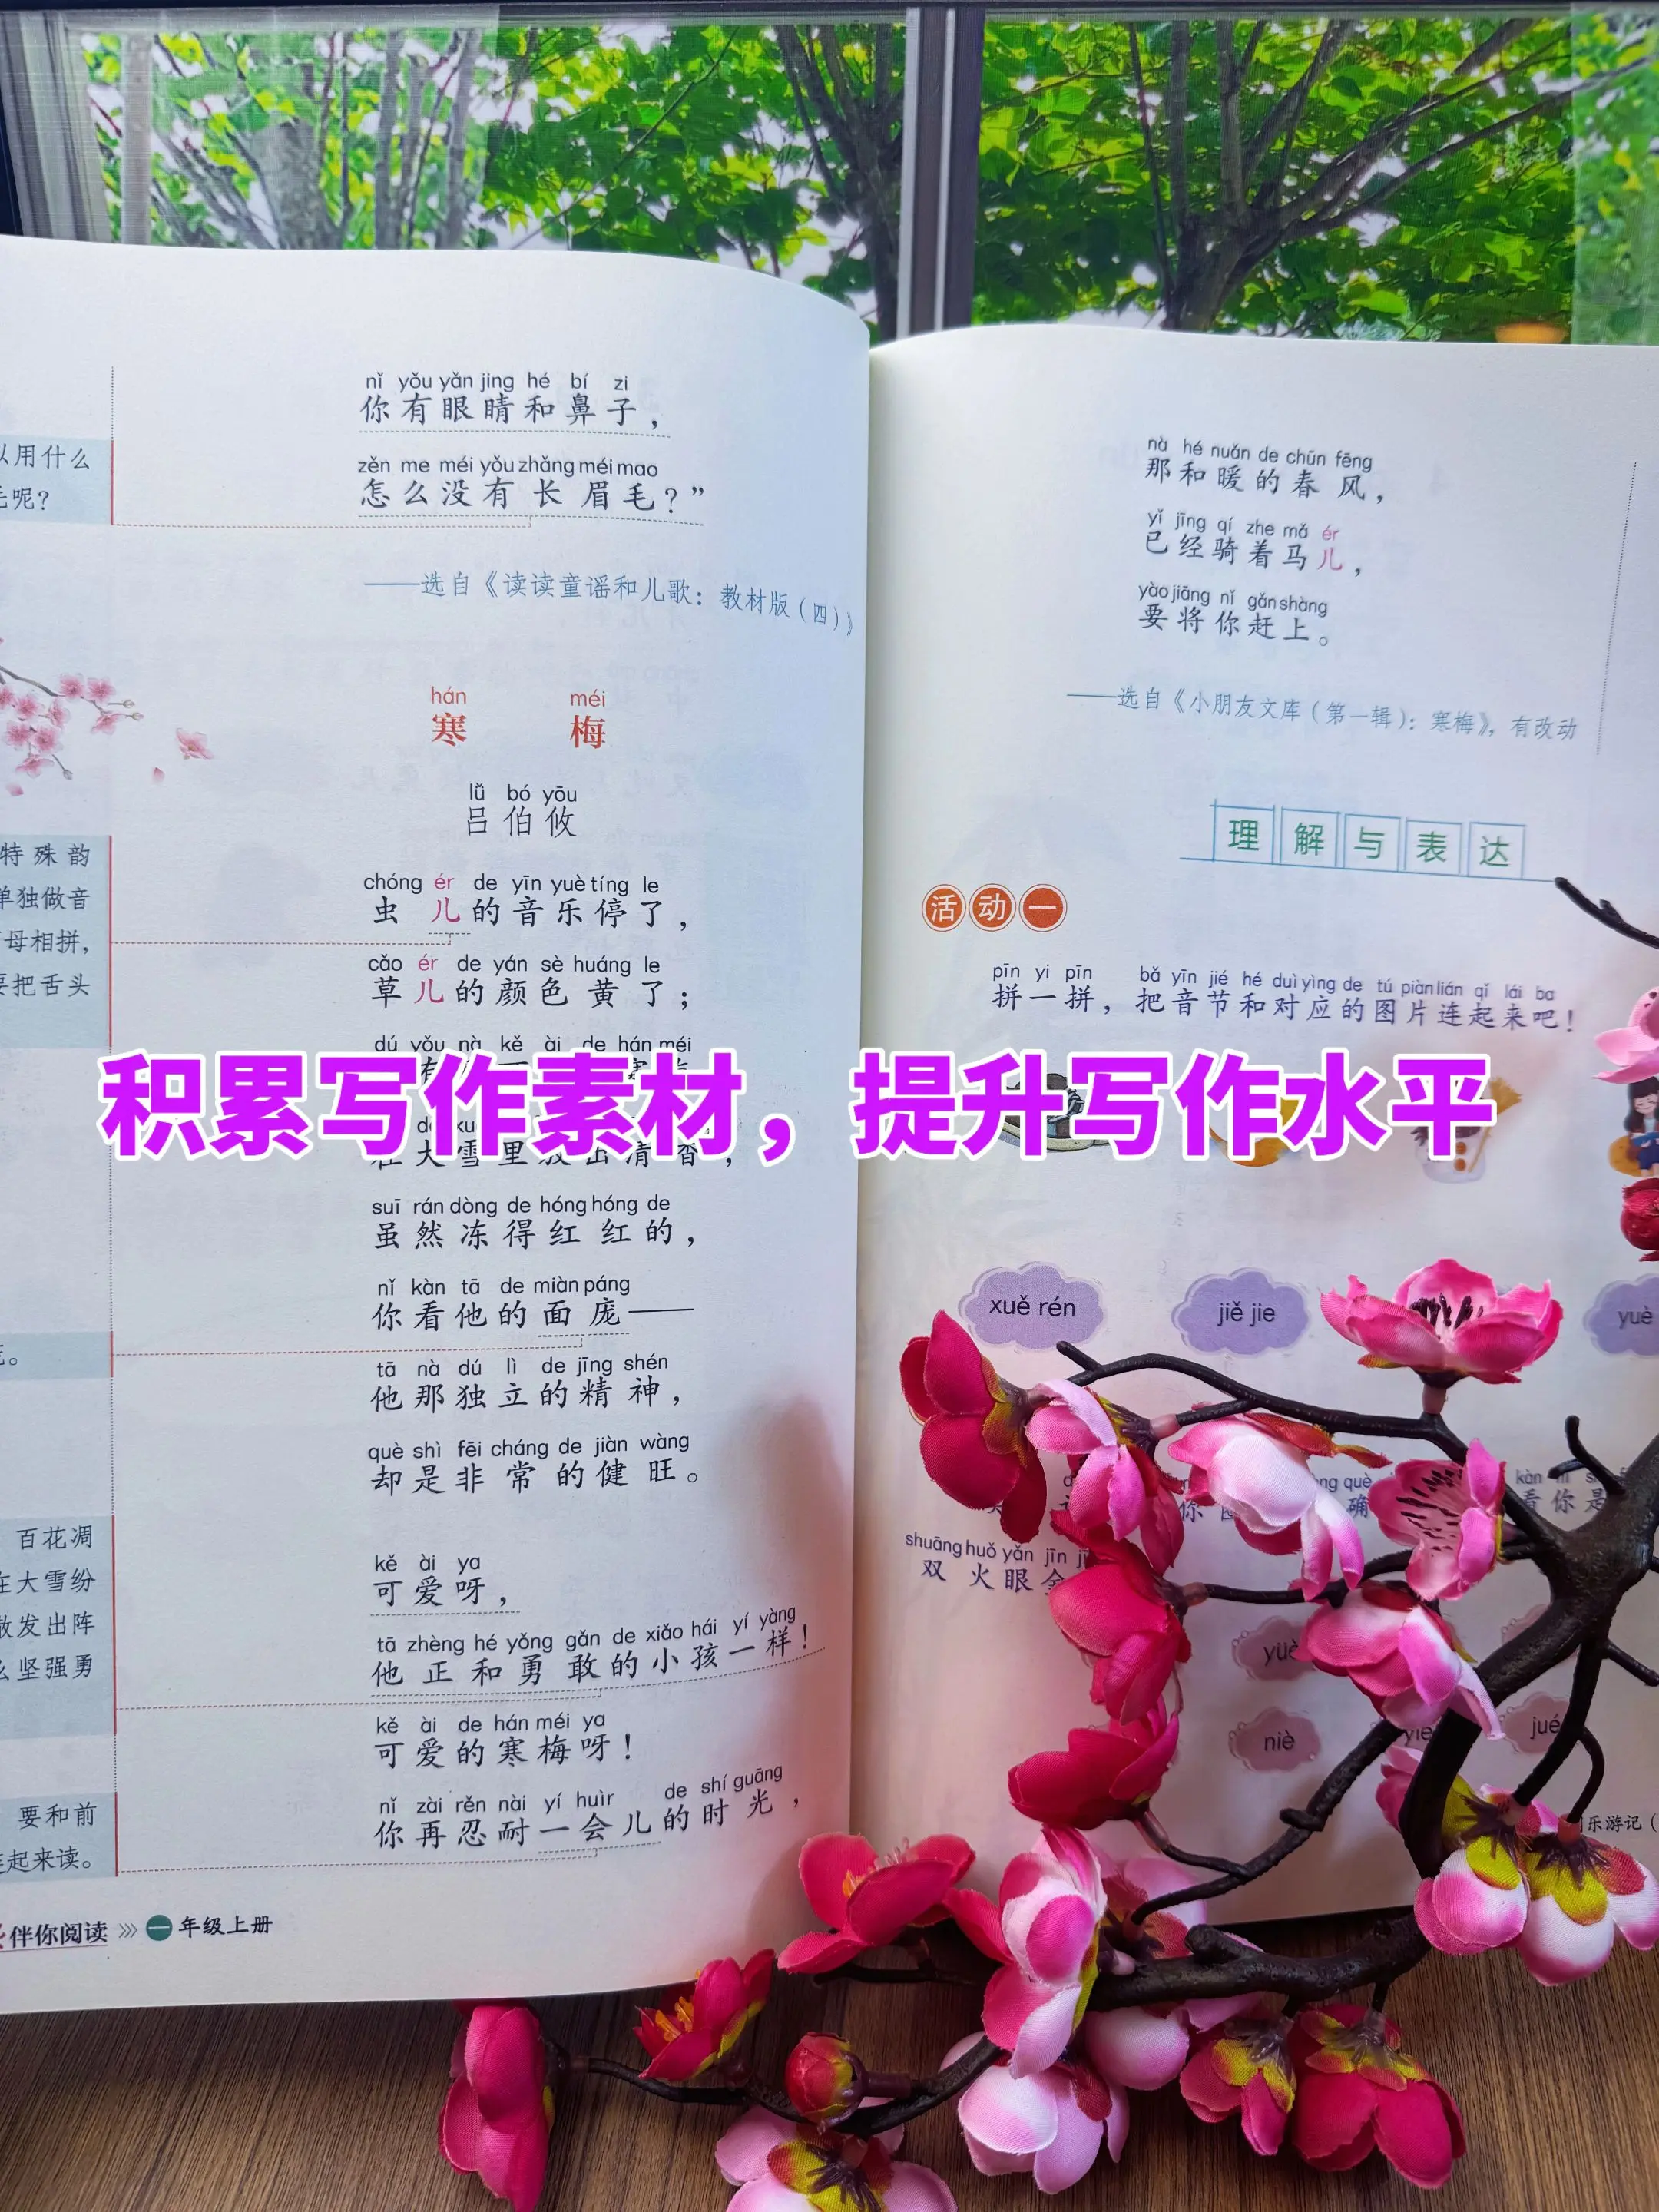 以用什么
毛呢？
nǐ yǒu yǎn jing hé bí zi
你有眼睛和鼻子，
zěn me méi yǒu zhǎng méi mao
怎么没有长眉毛？”
——选自《读读童谣和儿歌：教材版（四）》
hán méi
寒梅
lǚ bó yōu
吕伯攸
特殊韵
单独做音
母相拼，
要把舌头
chóng ér de yīn yuè tíng le
虫儿的音乐停了，
cǎo ér de yán sè huáng le
草儿的颜色黄了；
dú yǒu nà kě ài de hán méi
积累写作素材，提升写作水平
大雪里
suī rán dòng de hóng hóng de
虽然冻得红红的，
nǐ kàn tā de miàn páng
你看他的面庞——
tā nà dú lì de jīng shén
他那独立的精神，
què shì fēi cháng de jiàn wàng
却是非常的健旺。
百花凋
在大雪纷
散发出阵
么坚强勇
kě ài ya
可爱呀，
tā zhèng hé yǒng gǎn de xiǎo hái yí yàng
他正和勇敢的小孩一样！
kě ài de hán méi ya
可爱的寒梅呀！
要和前
起来读。
nǐ zài rěn nài yí huìr de shí guāng
你再忍耐一会儿的时光，
伴你阅读 》》 一年级上册
nà hé nuǎn de chūn fēng
那和暖的春风，
yǐ jīng qí zhe mǎ ér
已经骑着马儿，
yào jiāng nǐ gǎn shàng
要将你赶上。
——选自《小朋友文库（第一辑）：寒梅》，有改动
理解与表达
活动一
pīn yi pīn bǎ yīn jié hé duì yìng de tú piàn lián qǐ lái ba
拼一拼，把音节和对应的图片连起来吧！
xuě rén
jiě jie
yuè
看你是
shuāng huǒ yǎn jīn
双火眼金
niè
jué
乐游记（